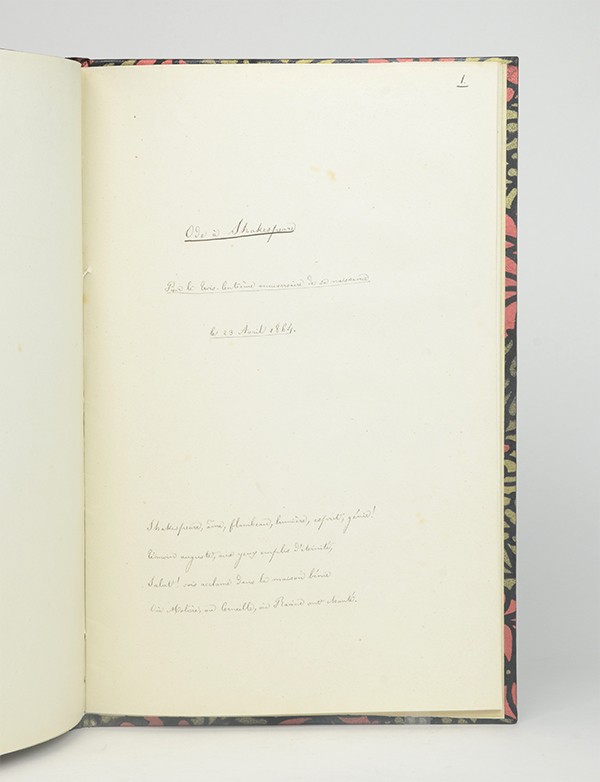 1.
Ode à Shakespeare
Pour le trois-centième anniversaire de sa naissance
le 23 Avril 1864.
Shakespeare, âme, flambeau, lumière, esprit, génie!
Témoin auguste, aux yeux emplis d'éternité,
Salut! sois acclamé dans la maison bénie
Où Molière, où Corneille, où Racine ont chanté.